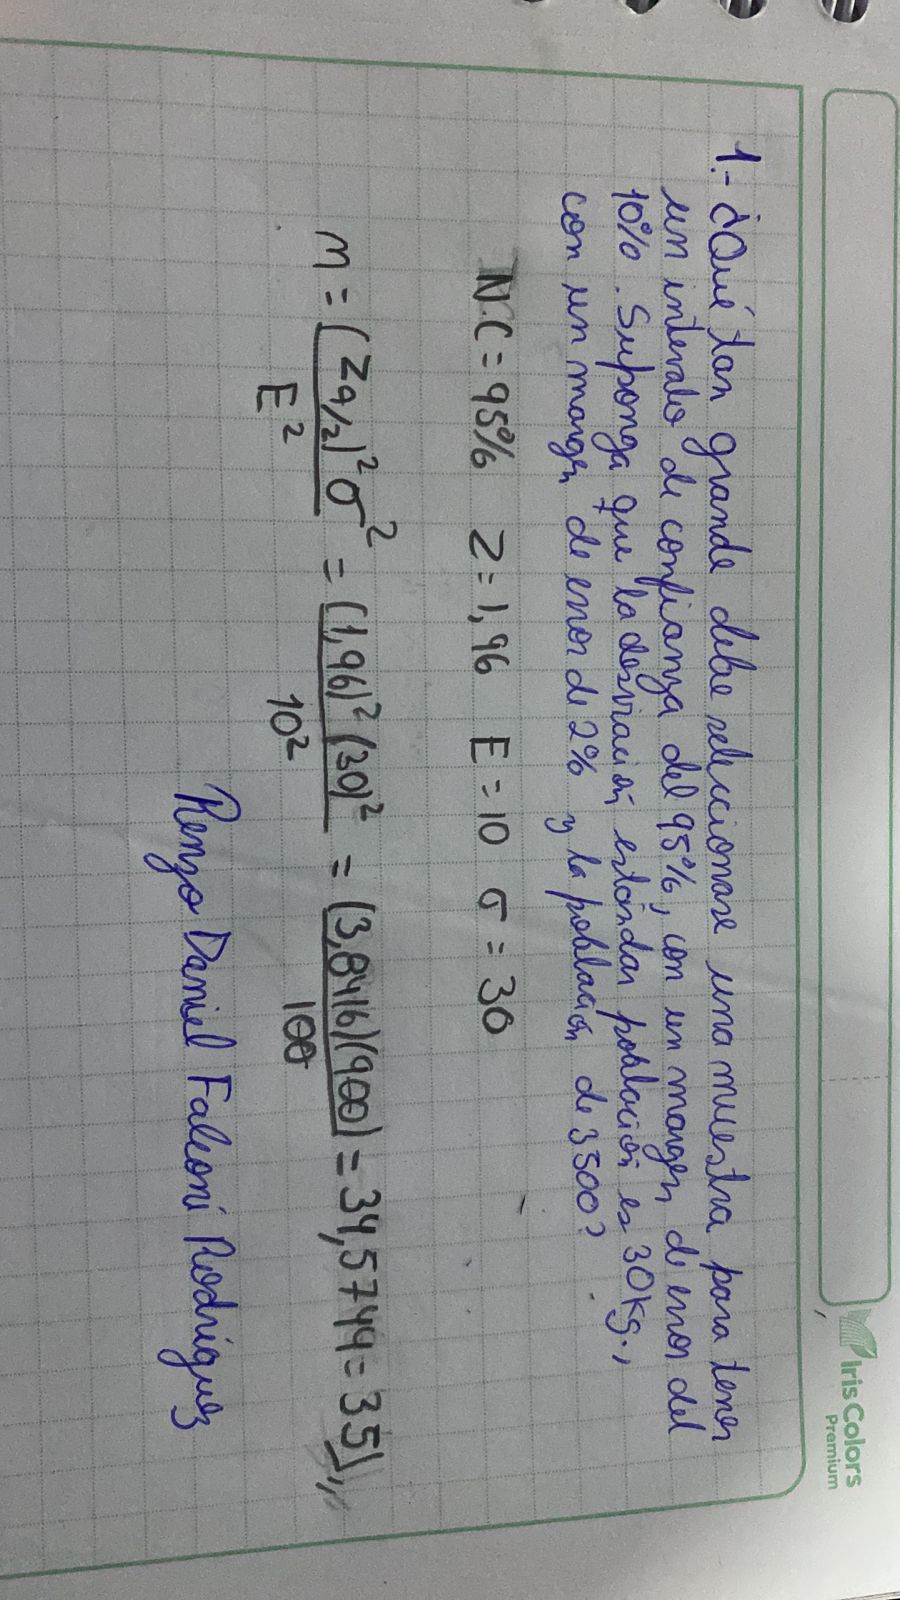 Iris Colors
Premium
1.- ¿Qué tan grande debe seleccionarse una muestra para tener
un intervalo de confianza del 95%, con un margen de error del
10%. Suponga que la desviación estándar población es 30kg.,
con un margen de error de 2% y la población de 3500?
N.C = 95% Z = 1,96 E = 10 σ = 30
n = (Zα/2)²σ² / E² = (1,96)²(30)² / 10² = (3,8416)(900) / 100 = 34,5744 = 35//
Renzo Daniel Falconí Rodríguez